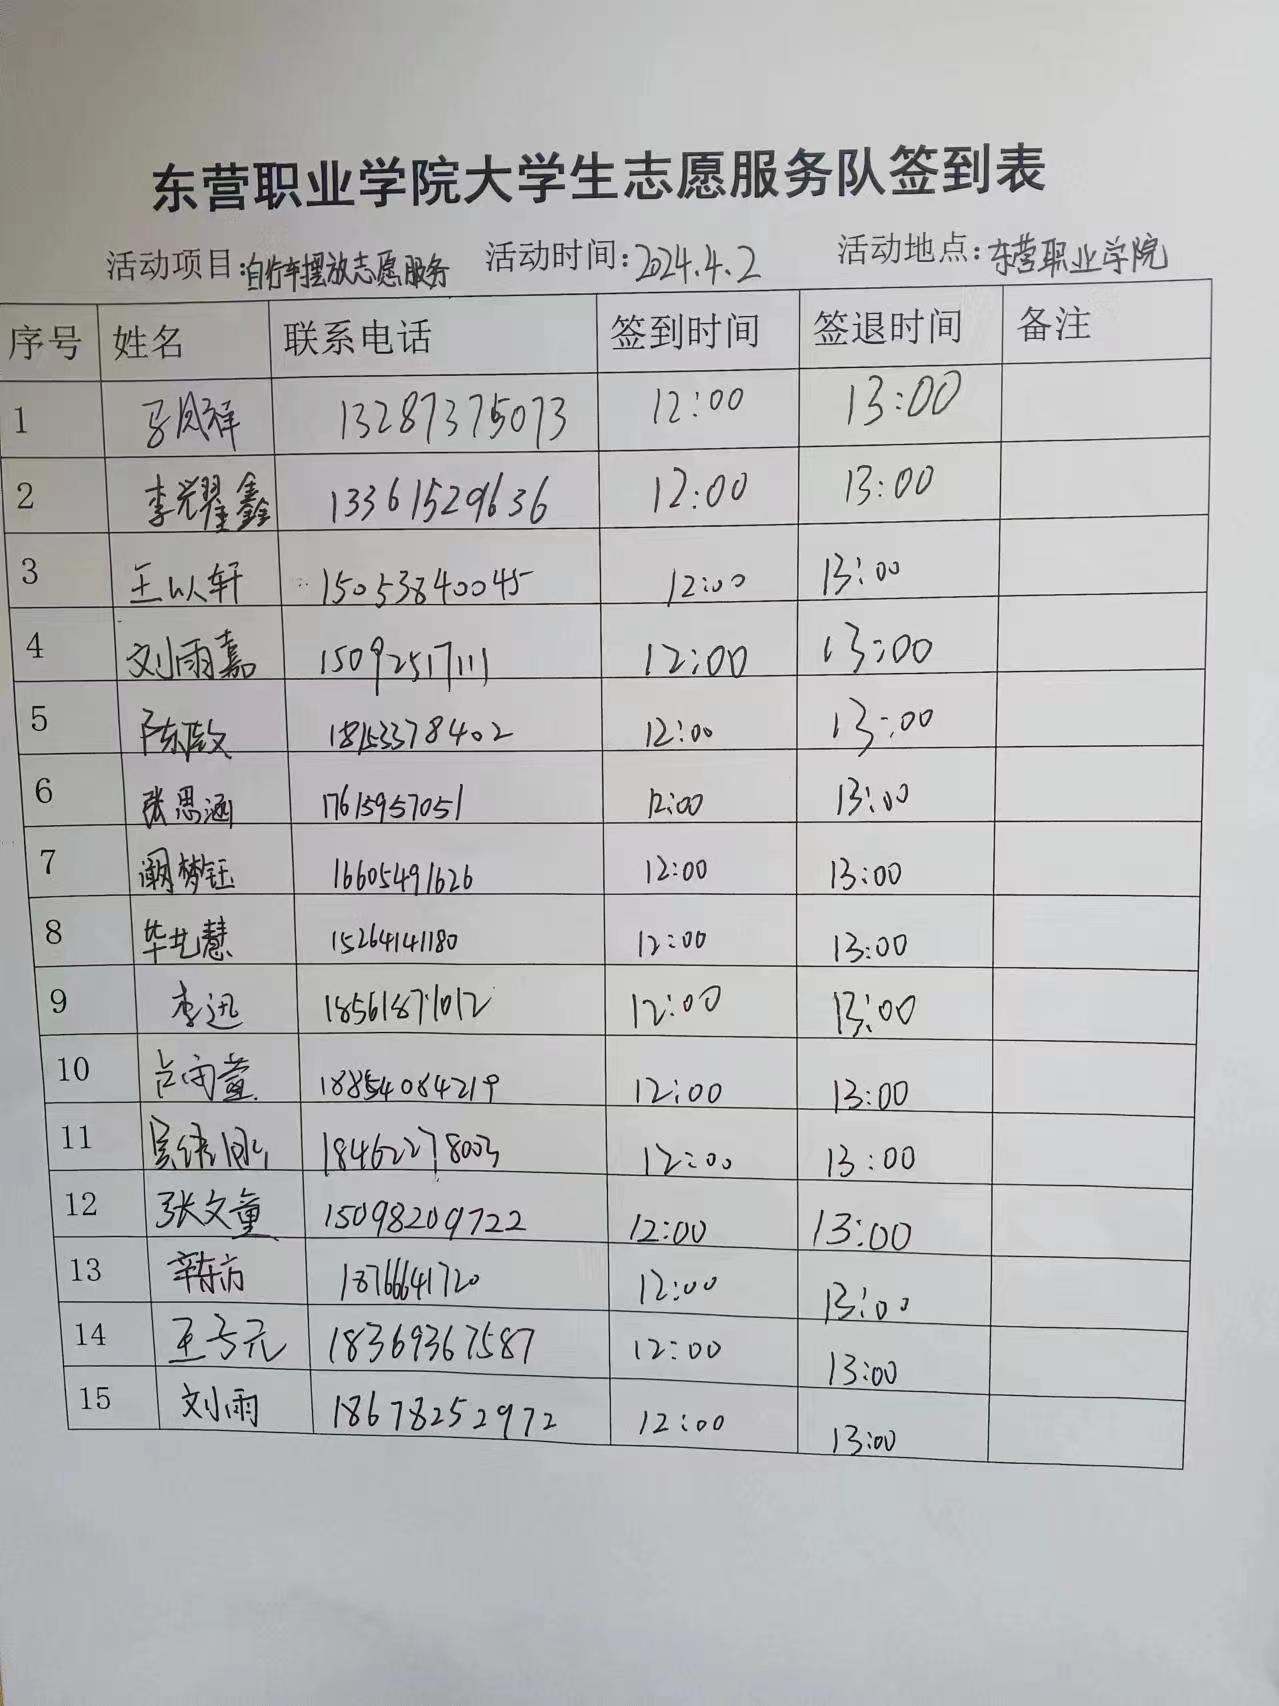 东营职业学院大学生志愿服务队签到表
活动项目:自行车摆放志愿服务 活动时间:2024.4.2 活动地点:东营职业学院
序号 姓名 联系电话 签到时间 签退时间 备注
1 马凤祥 13287375073 12:00 13:00
2 李耀鑫 13361529636 12:00 13:00
3 王以轩 15053840045 12:00 13:00
4 刘雨嘉 15092517111 12:00 13:00
5 18153378402 12:00 13:00
6 张思涵 17615957051 12:00 13:00
7 阚梦钰 16605491626 12:00 13:00
8 毕艺慧 15264141180 12:00 13:00
9 李迅 18561871012 12:00 13:00
10 18854084219 12:00 13:00
11 18462278003 12:00 13:00
12 张文童 15098209722 12:00 13:00
13 辛东方 18766641720 12:00 13:00
14 18369367587 12:00 13:00
15 刘雨 18678252972 12:00 13:00